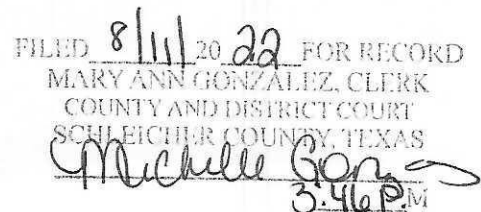 FILED 8/11/20 22 FOR RECORD
MARY ANN GONZALEZ, CLERK
COUNTY AND DISTRICT COURT
SCHLEICHER COUNTY, TEXAS
Michelle
3:46 P.M